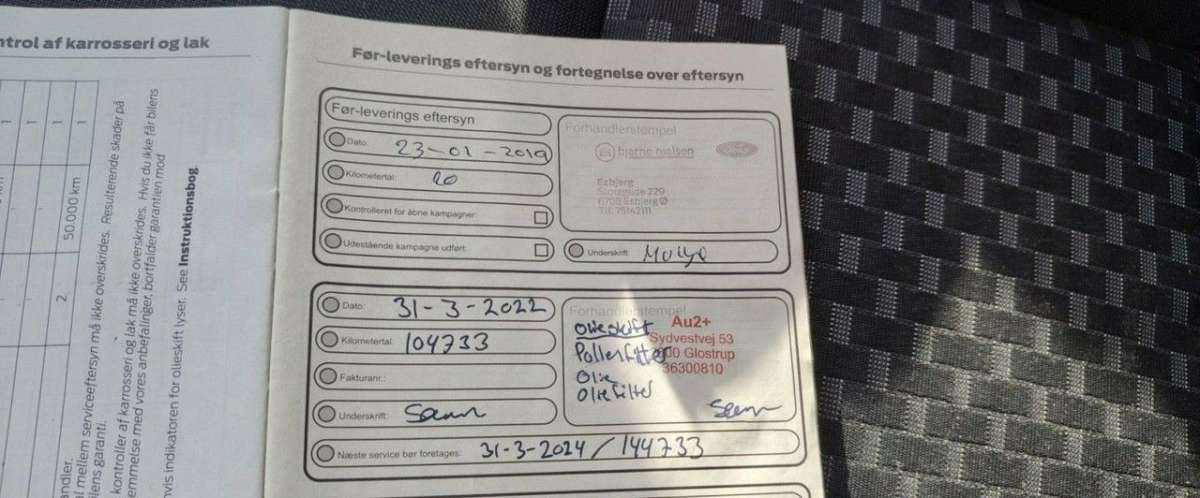 ntrol af karrosseri og lak
1
1
1
1
2
50.000 km
andler.
al mellem serviceeftersyn må ikke overskrides. Resulterende skader på
ilens garanti.
kontroller af karrosseri og lak må ikke overskrides. Hvis du ikke får bilens
emmelse med vores anbefalinger, bortfalder garantien mod
hvis indikatoren for olieskift lyser. See Instruktionsbog
Før-leverings eftersyn og fortegnelse over eftersyn
Før-leverings eftersyn
Dato: 23-01-2019
Kilometertal:
Kontrolleret for åbne kampagner:
Udestående kampagne udført:
Forhandlerstempel
bjarne nielsen
Esbjerg
229
6700 Esbjerg Ø
Tlf. 75142111
Underskrift:
Dato: 31-3-2022
Kilometertal: 104733
Fakturanr.:
Underskrift:
Forhandlerstempel
Olieskift
Pollenfilter
Olie
Oliefilter
Au2+
Sydvestvej 53
00 Glostrup
36300810
Næste service bør foretages: 31-3-2024 / 144733